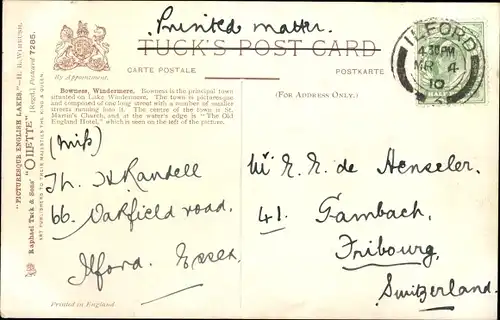 Printed matter.
TUCK'S POST CARD
CARTE POSTALE
POSTKARTE
By Appointment.
(FOR ADDRESS ONLY.)
Bowness, Windermere. Bowness is the principal town
situated on Lake Windermere. The town is picturesque
and composed of one long street with a number of smaller
streets running into it. The centre of the town is St.
Martin's Church, and at the water's edge is "The Old
England Hotel," which is seen on the left of the picture.
"PICTURESQUE ENGLISH LAKES."—H. B. WIMBUSH.
Raphael Tuck & Sons' "OILETTE" [Regd.] Postcard 7285.
ART PUBLISHERS TO THEIR MAJESTIES THE KING & QUEEN.
ILFORD
4.30PM
MR 4
10
(Miss)
Th. H Randell
66. Oakfield road,
Ilford. Essex.
Mr E. E. de Henseler.
41. Gambach,
Fribourg,
Switzerland.
Printed in England.